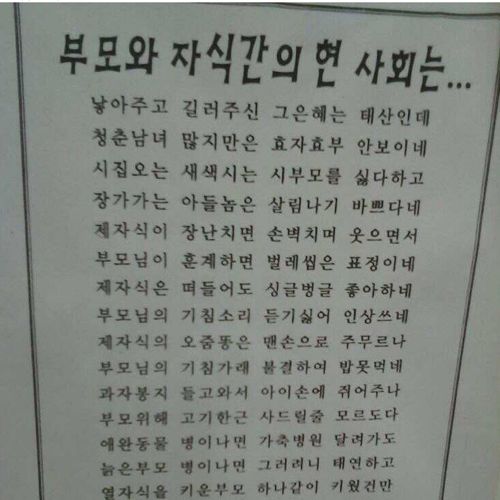 부모와 자식간의 현 사회는...
낳아주고 길러주신 그은혜는 태산인데
청춘남녀 많지만은 효자효부 안보이네
시집오는 새색시는 시부모를 싫다하고
장가가는 아들놈은 살림나기 바쁘다네
제자식이 장난치면 손벽치며 웃으면서
부모님이 훈계하면 벌레씹은 표정이네
제자식은 떠들어도 싱글벙글 좋아하네
부모님의 기침소리 듣기싫어 인상쓰네
제자식의 오줌똥은 맨손으로 주무르나
부모님의 기침가래 불결하여 밥못먹네
과자봉지 들고와서 아이손에 쥐어주나
부모위해 고기한근 사드릴줄 모르도다
애완동물 병이나면 가축병원 달려가도
늙은부모 병이나면 그러려니 태연하고
열자식을 키운부모 하나같이 키웠건만